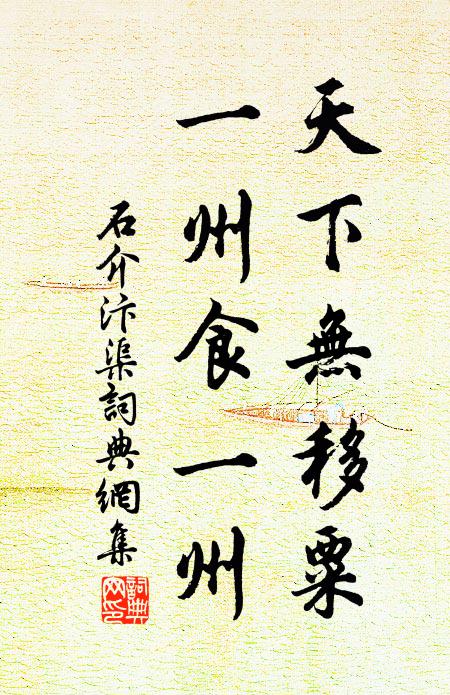 天下無移粟
一州食一州
石介汴渠詞典網集
詞典
网印